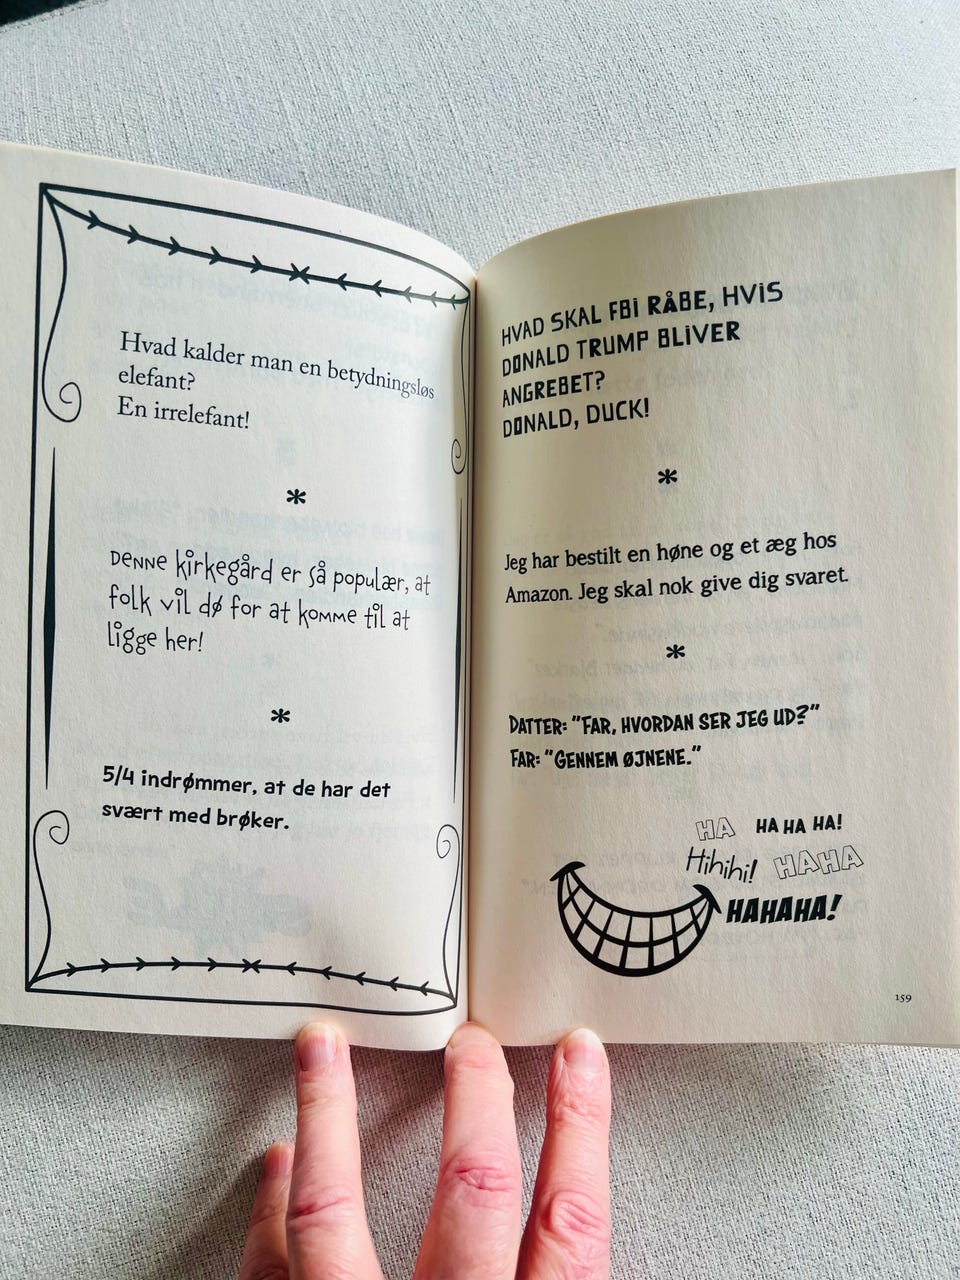 Hvad kalder man en betydningsløs
elefant?
En irrelefant!
*
Denne kirkegård er så populær, at
folk vil dø for at komme til at
ligge her!
*
5/4 indrømmer, at de har det
svært med brøker.
HVAD SKAL FBI RÅBE, HVIS
DONALD TRUMP BLIVER
ANGREBET?
DONALD, DUCK!
*
Jeg har bestilt en høne og et æg hos
Amazon. Jeg skal nok give dig svaret.
*
DATTER: "FAR, HVORDAN SER JEG UD?"
FAR: "GENNEM ØJNENE."
HA HA HA HA!
Hihihi! HAHA
HAHAHA!
159